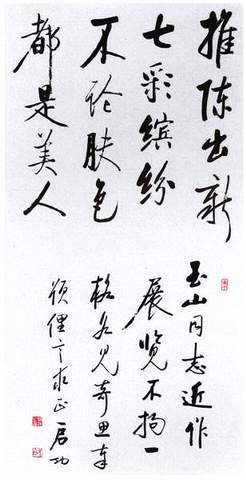 推陈出新
七彩缤纷
不论肤色
都是美人
玉山同志近作
展览不拘一
格各见奇思率
颂俚言求正启功